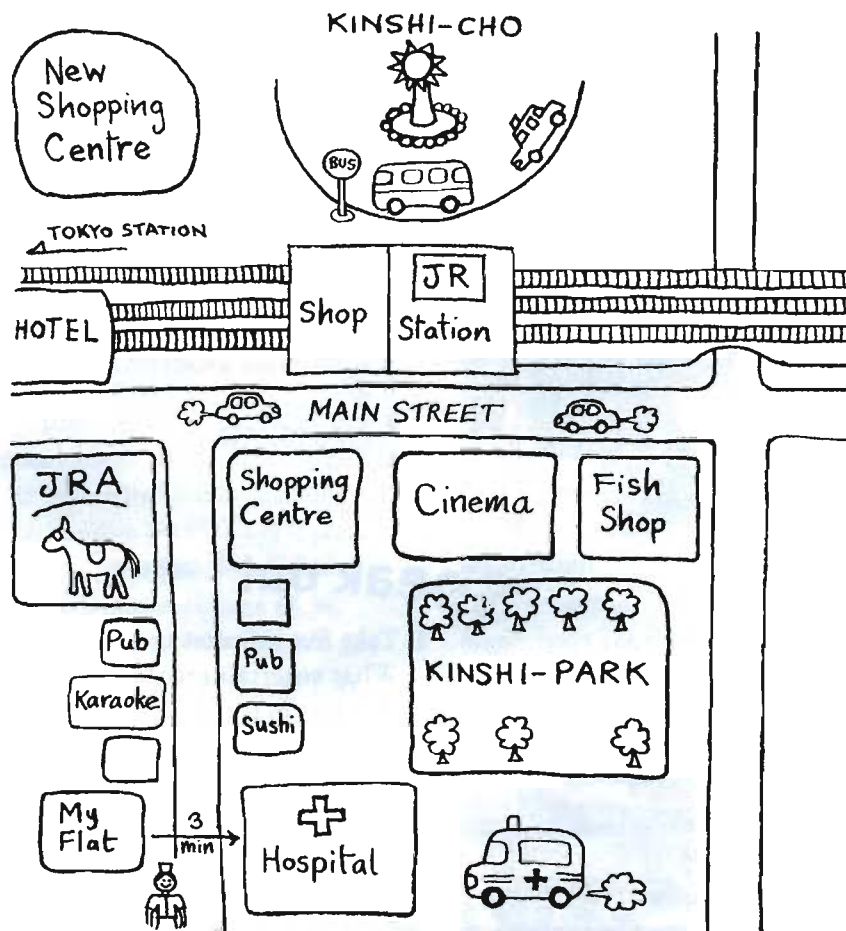 KINSHI-CHO
New
Shopping
Centre
BUS
TOKYO STATION
HOTEL
Shop
JR
Station
MAIN STREET
JRA
Shopping
Centre
Cinema
Fish
Shop
Pub
Pub
KINSHI-PARK
Karaoke
Sushi
My
Flat
3
min
Hospital